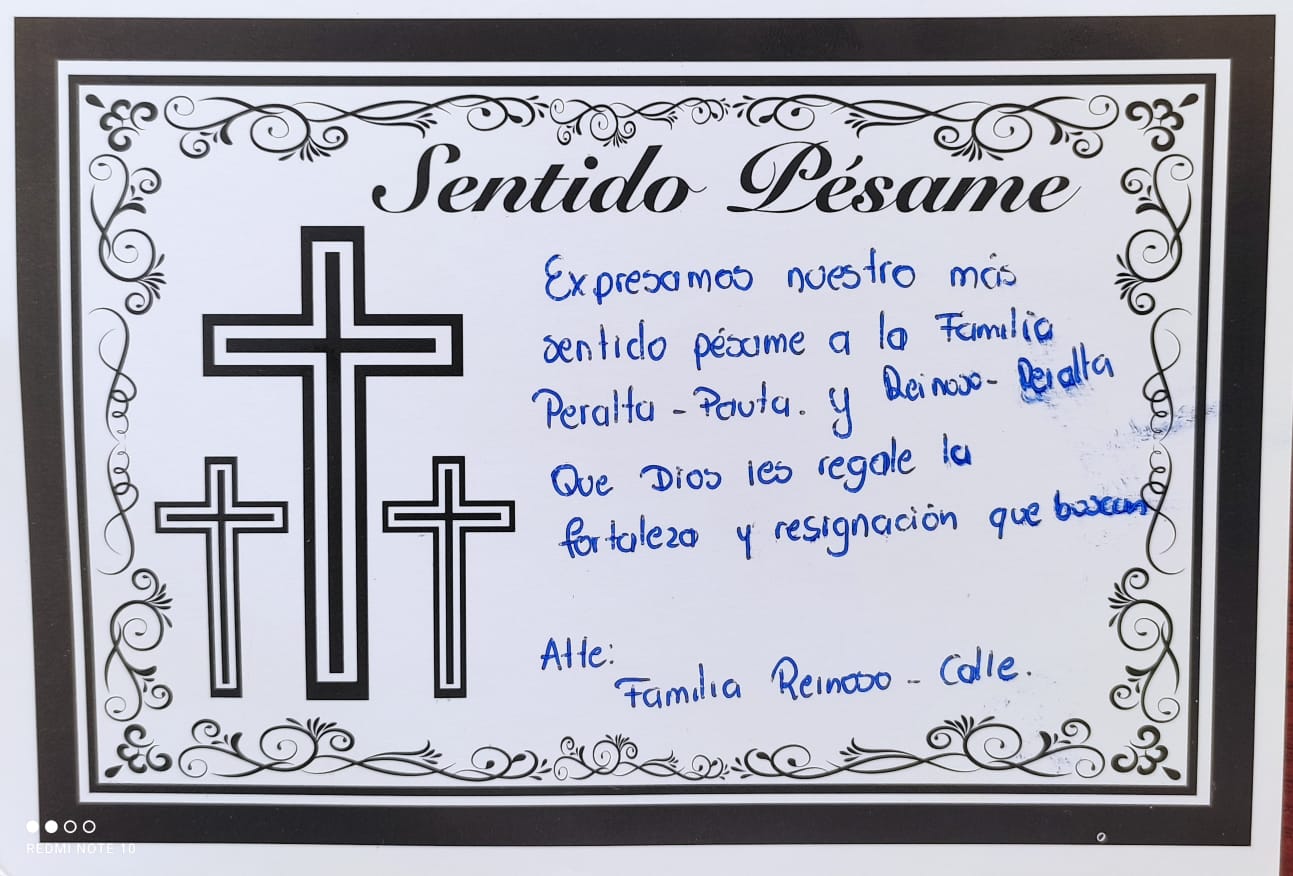 Sentido Pésame
Expresamos nuestro más
sentido pésame a la Familia
Peralta - Pauta. y Reinoso - Peralta
Que Dios les regale la
fortaleza y resignación que buscan
Atte:
Familia Reinoso - Calle.
REDMI NOTE 10